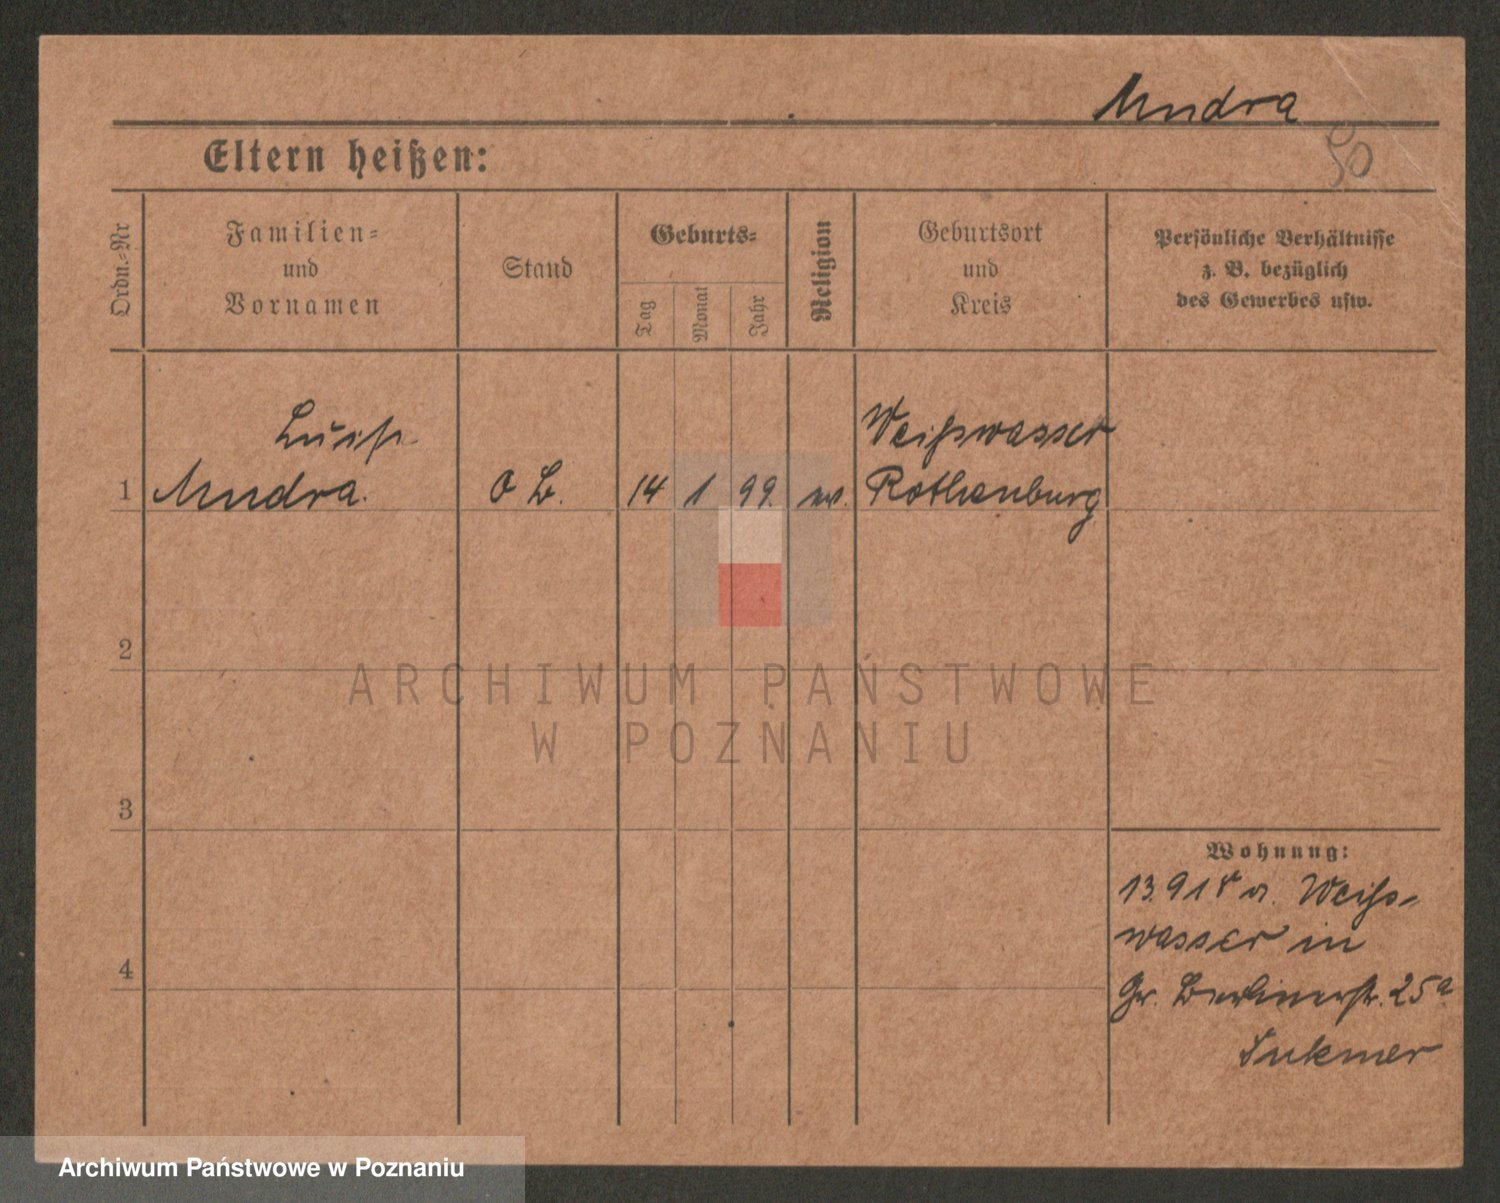 Mudra
50
Eltern heißen:
Ordn.-Nr
Familien-
und
Vornamen
Stand
Geburts-
Tag
Monat
Jahr
Religion
Geburtsort
und
Kreis
Persönliche Verhältnisse
z. B. bezüglich
des Gewerbes usw.
Luise
Weißwasser
1 Mudra. 14 1 99. ev. Rothenburg
2
ARCHIWUM PAŃSTWOWE
W POZNANIU
3
Wohnung:
13.9.18 v. Weiß-
wasser in
Gr. Berlinerstr. 25a
4
Archiwum Państwowe w Poznaniu